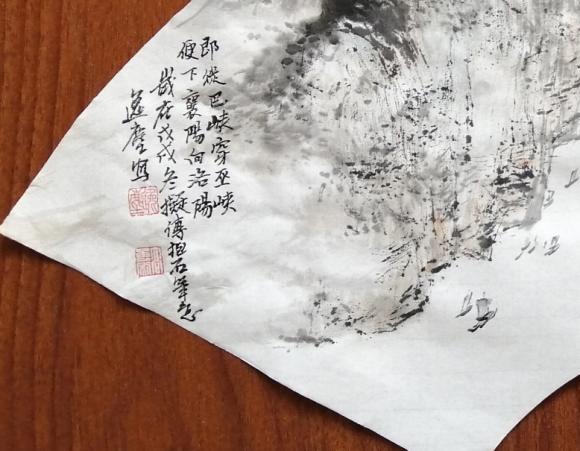 即從巴峽穿巫峽
便下襄陽向洛陽
歲在戊戌冬擬傅抱石筆意
寫